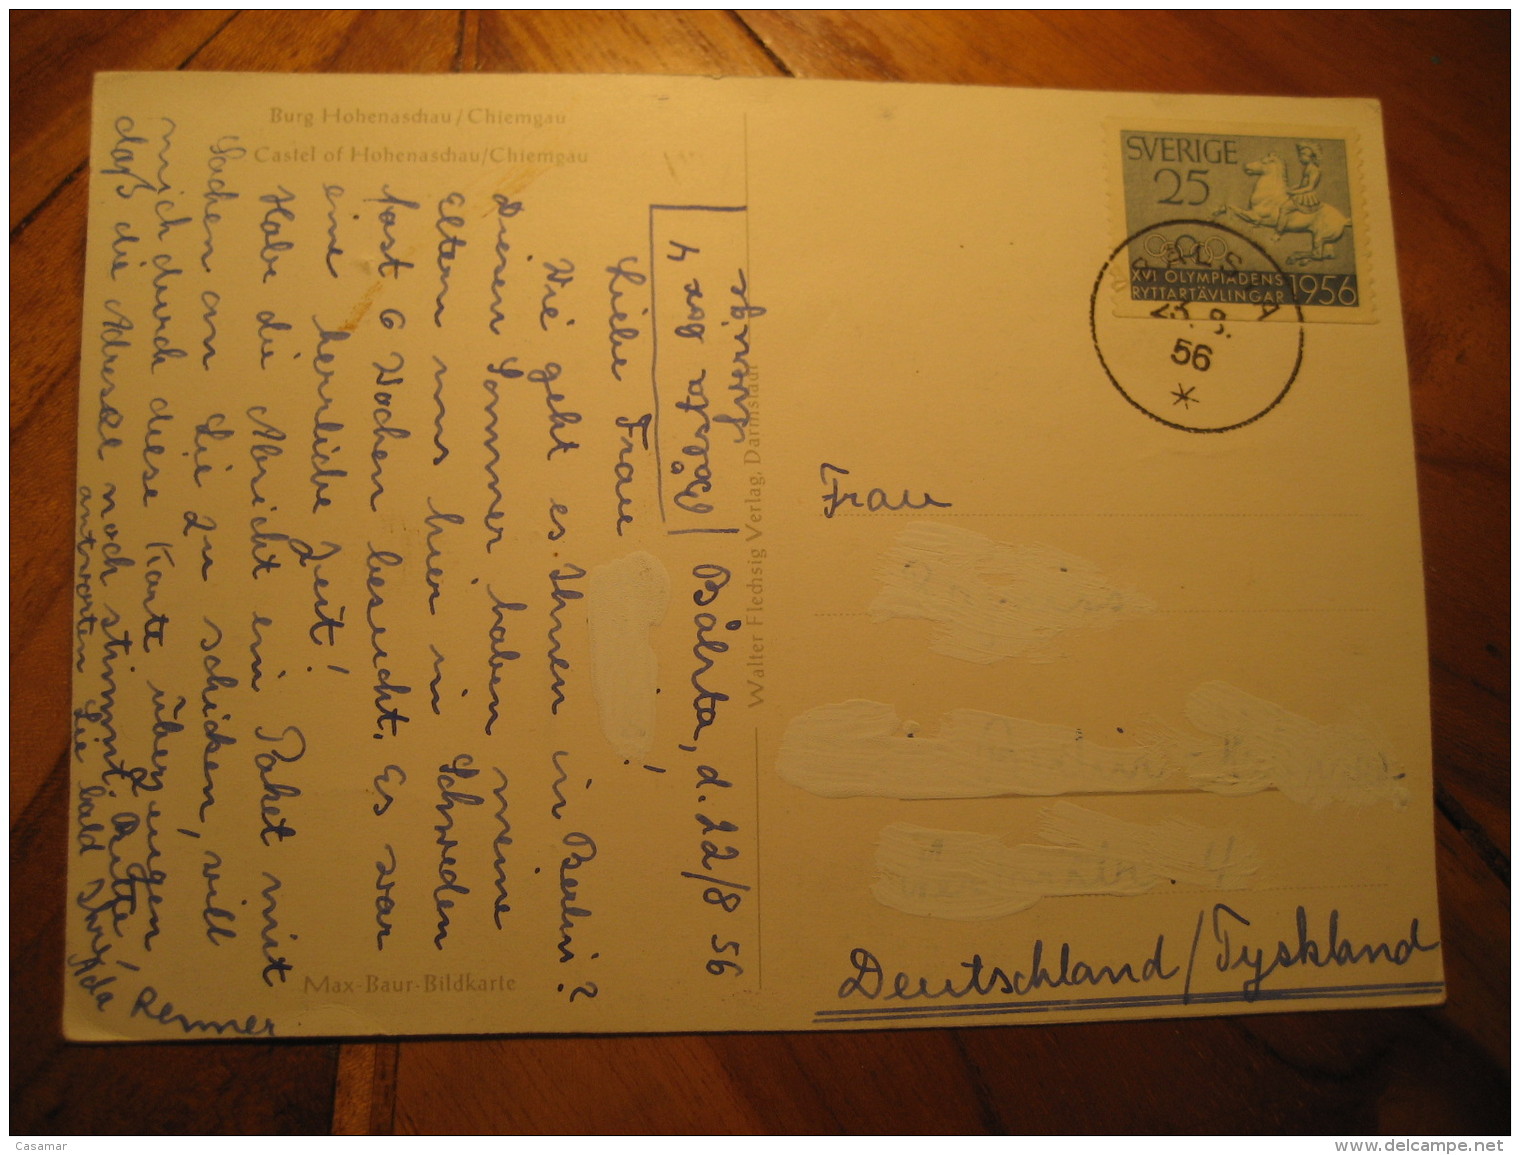 Burg Hohenaschau/Chiemgau
Castel of Hohenaschau/Chiemgau
Bålsta, d. 22/8 56
Bålsta Box 4
Sverige
Liebe Frau !
Wie geht es Ihnen in Berlin?
Diesen Sommer haben meine
Eltern uns hier in Schweden
fast 6 Wochen besucht. Es war
eine herrliche Zeit!
Habe die Absicht ein Paket mit
Sachen an Sie zu schicken, will
mich durch diese Karte überzeugen
daß die Adresse noch stimmt. Bitte
antworten Sie bald Ihrer Ada
Renner
Max-Baur-Bildkarte
Walter Flechsig Verlag, Darmstadt
SVERIGE
25
XVI OLYMPIADENS
RYTTARTÄVLINGAR 1956
BÅLSTA
56
Frau
Deutschland/Tyskland
Casamar
www.delcampe.net